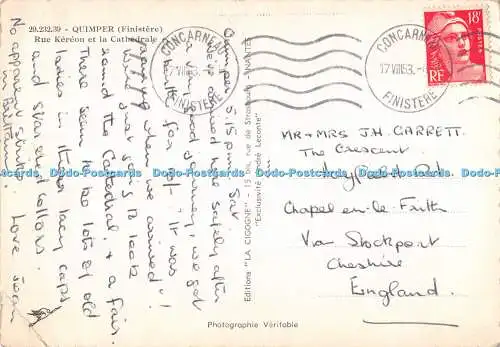 29.232.39 - QUIMPER (Finistère)
Rue Kéréon et la Cathédrale
CONCARNEAU
17 VIII 53
FINISTÈRE
CONCARNEAU
17 VIII 53
FINISTÈRE
18F
RF
POSTES
Quimper 5.15 pm. Sat
We've arrived here safely after
a very good journey, we got
for it was
when we arrived!
We're just going to look
round the Cathedral, & a fair.
There seem to be lots of old
ladies in their lacy caps
and starched collars.
No apparent strike
in Brittany! Love Jean
Editions "LA CIGOGNE" - 15 bis, rue de Strasbourg - NANTES
"Exclusivité André Leconte"
MR & MRS J.H. GARRETT.
The Crescent
CHAPEL-EN-LE-Frith
Via Stockport
Cheshire
England.
Photographie Véritable
Postcards Dead Postcards Dead Postcards Dead Postcards